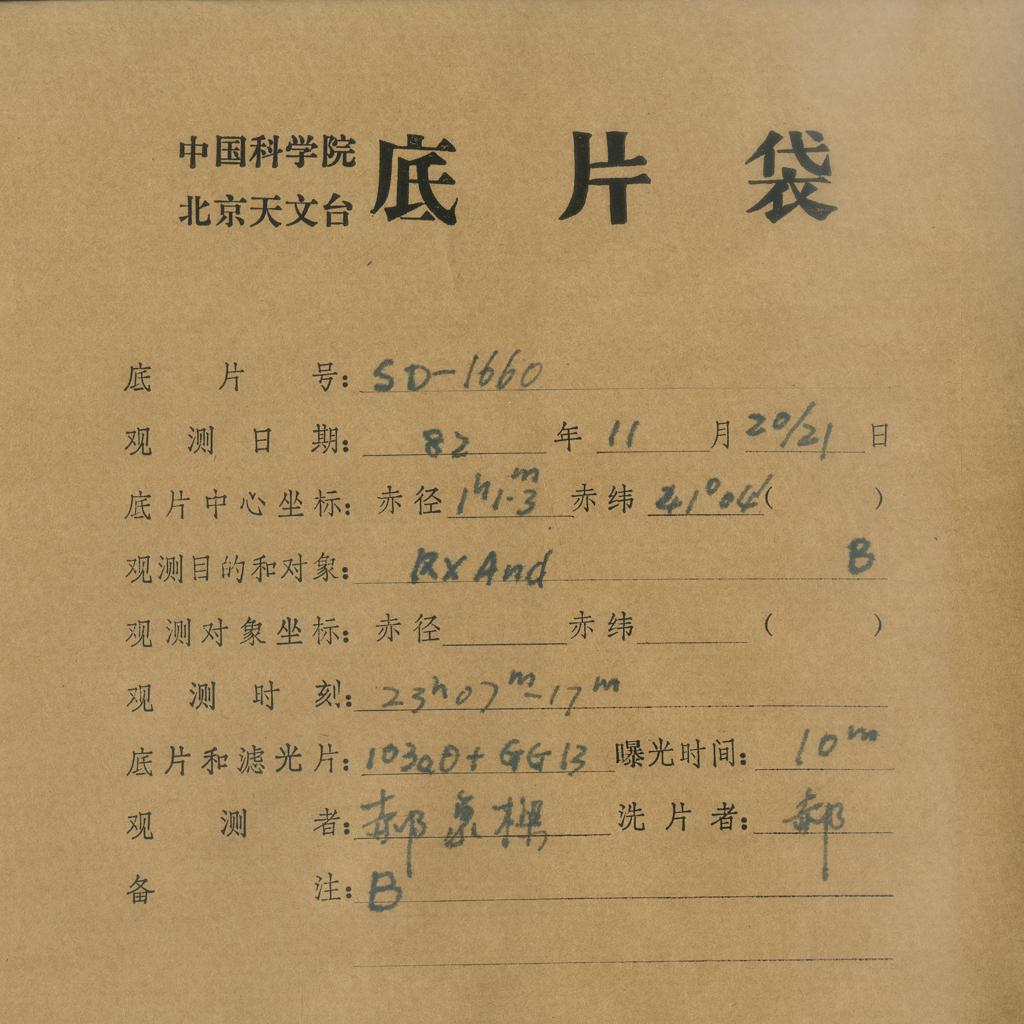 中国科学院
北京天文台
底片袋
底片号：SD-1660
观测日期：82年11月20/21日
底片中心坐标：赤径1ʰ1.3ᵐ赤纬41°04′（ ）
观测目的和对象：RX And B
观测对象坐标：赤径 赤纬 （ ）
观测时刻：23ʰ07ᵐ-17ᵐ
底片和滤光片：103aO+GG13 曝光时间：10ᵐ
观测者：郝象樑 洗片者：郝
备注：B